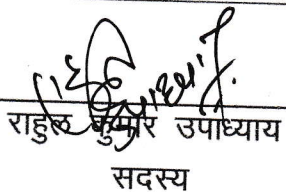 राहुल कुमार उपाध्याय
सदस्य